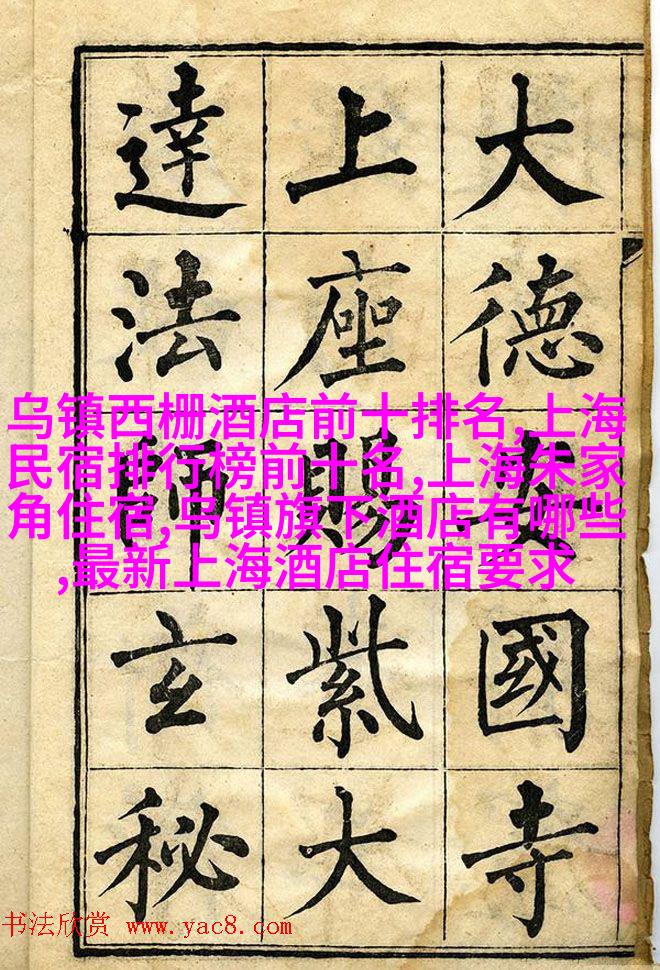 大德安國寺
上座賜紫大
達法師玄秘
乌镇西栅酒店前十排名,上海
民宿排行榜前十名,上海朱家
角住宿,乌镇旗下酒店有哪些
,最新上海酒店住宿要求
书法欣赏 www.yac8.com